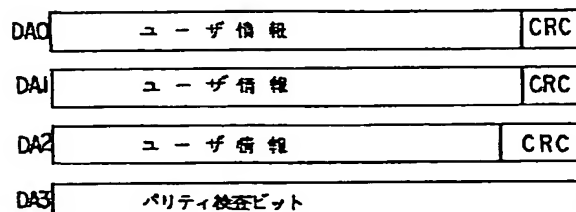 DA0 ユーザ情報 CRC
DA1 ユーザ情報 CRC
DA2 ユーザ情報 CRC
DA3 パリティ検査ビット